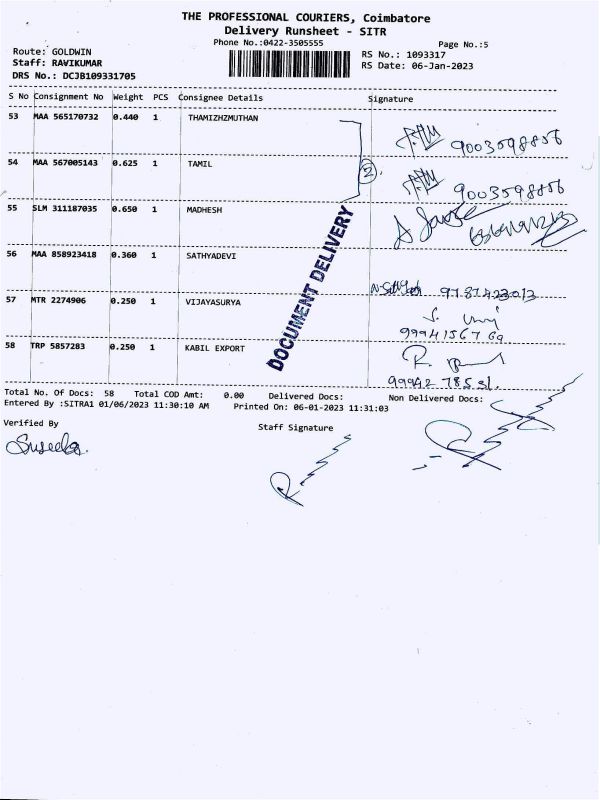 THE PROFESSIONAL COURIERS, Coimbatore
Delivery Runsheet - SITR
Phone No.:0422-3505555
Page No.:5
Route: GOLDWIN
RS No.: 1093317
Staff: RAVIKUMAR
RS Date: 06-Jan-2023
DRS No.: DCJB109331705
S No Consignment No Weight PCS Consignee Details Signature
53 MAA 565170732 0.440 1 THAMIZHZMUTHAN
9003598856
54 MAA 567005143 0.625 1 TAMIL
2
9003598856
55 SLM 311187035 0.650 1 MADHESH
56 MAA 858923418 0.360 1 SATHYADEVI
57 MTR 2274906 0.250 1 VIJAYASURYA
58 TRP 5857283 0.250 1 KABIL EXPORT
DOCUMENT DELIVERY
Total No. Of Docs: 58 Total COD Amt: 0.00 Delivered Docs: Non Delivered Docs:
Entered By :SITRA1 01/06/2023 11:30:10 AM Printed On: 06-01-2023 11:31:03
Verified By
Staff Signature